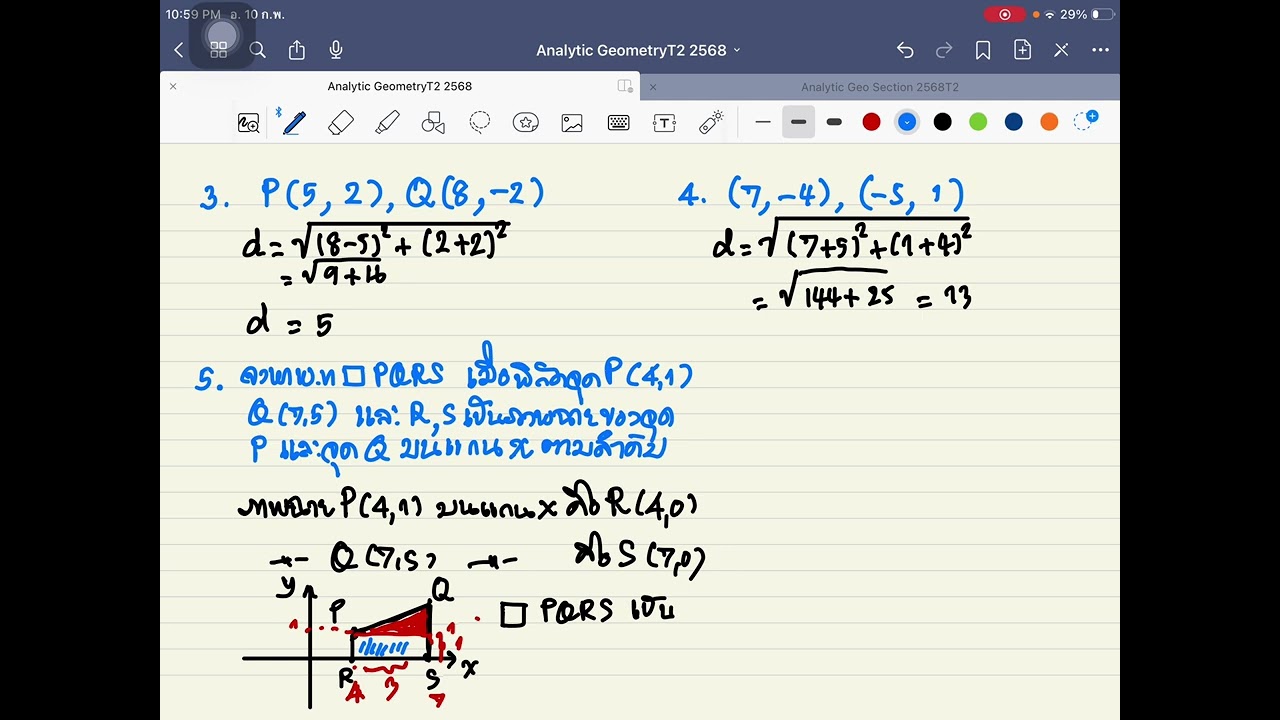 10:59 PM อ. 10 ก.พ.
29%
Analytic GeometryT2 2568
Analytic GeometryT2 2568
Analytic Geo Section 2568T2
3. P(5, 2), Q(8, -2)
d = √(8-5)² + (2+2)²
= √9+16
d = 5
4. (7, -4), (-5, 1)
d = √(7+5)² + (1+4)²
= √144+25 = 13
5. จงหาพ.ท □ PQRS เมื่อพิกัดจุด P(4,1)
Q(7,5) และ R, S เป็นภาพฉายของจุด
P และจุด Q บนแกน x ตามลำดับ
ภาพฉาย P(4,1) บนแกน x คือ R(4,0)
Q(7,5) คือ S(7,0)
□ PQRS เป็น
y
Q
P
1
1
R
S
x
4
3
7